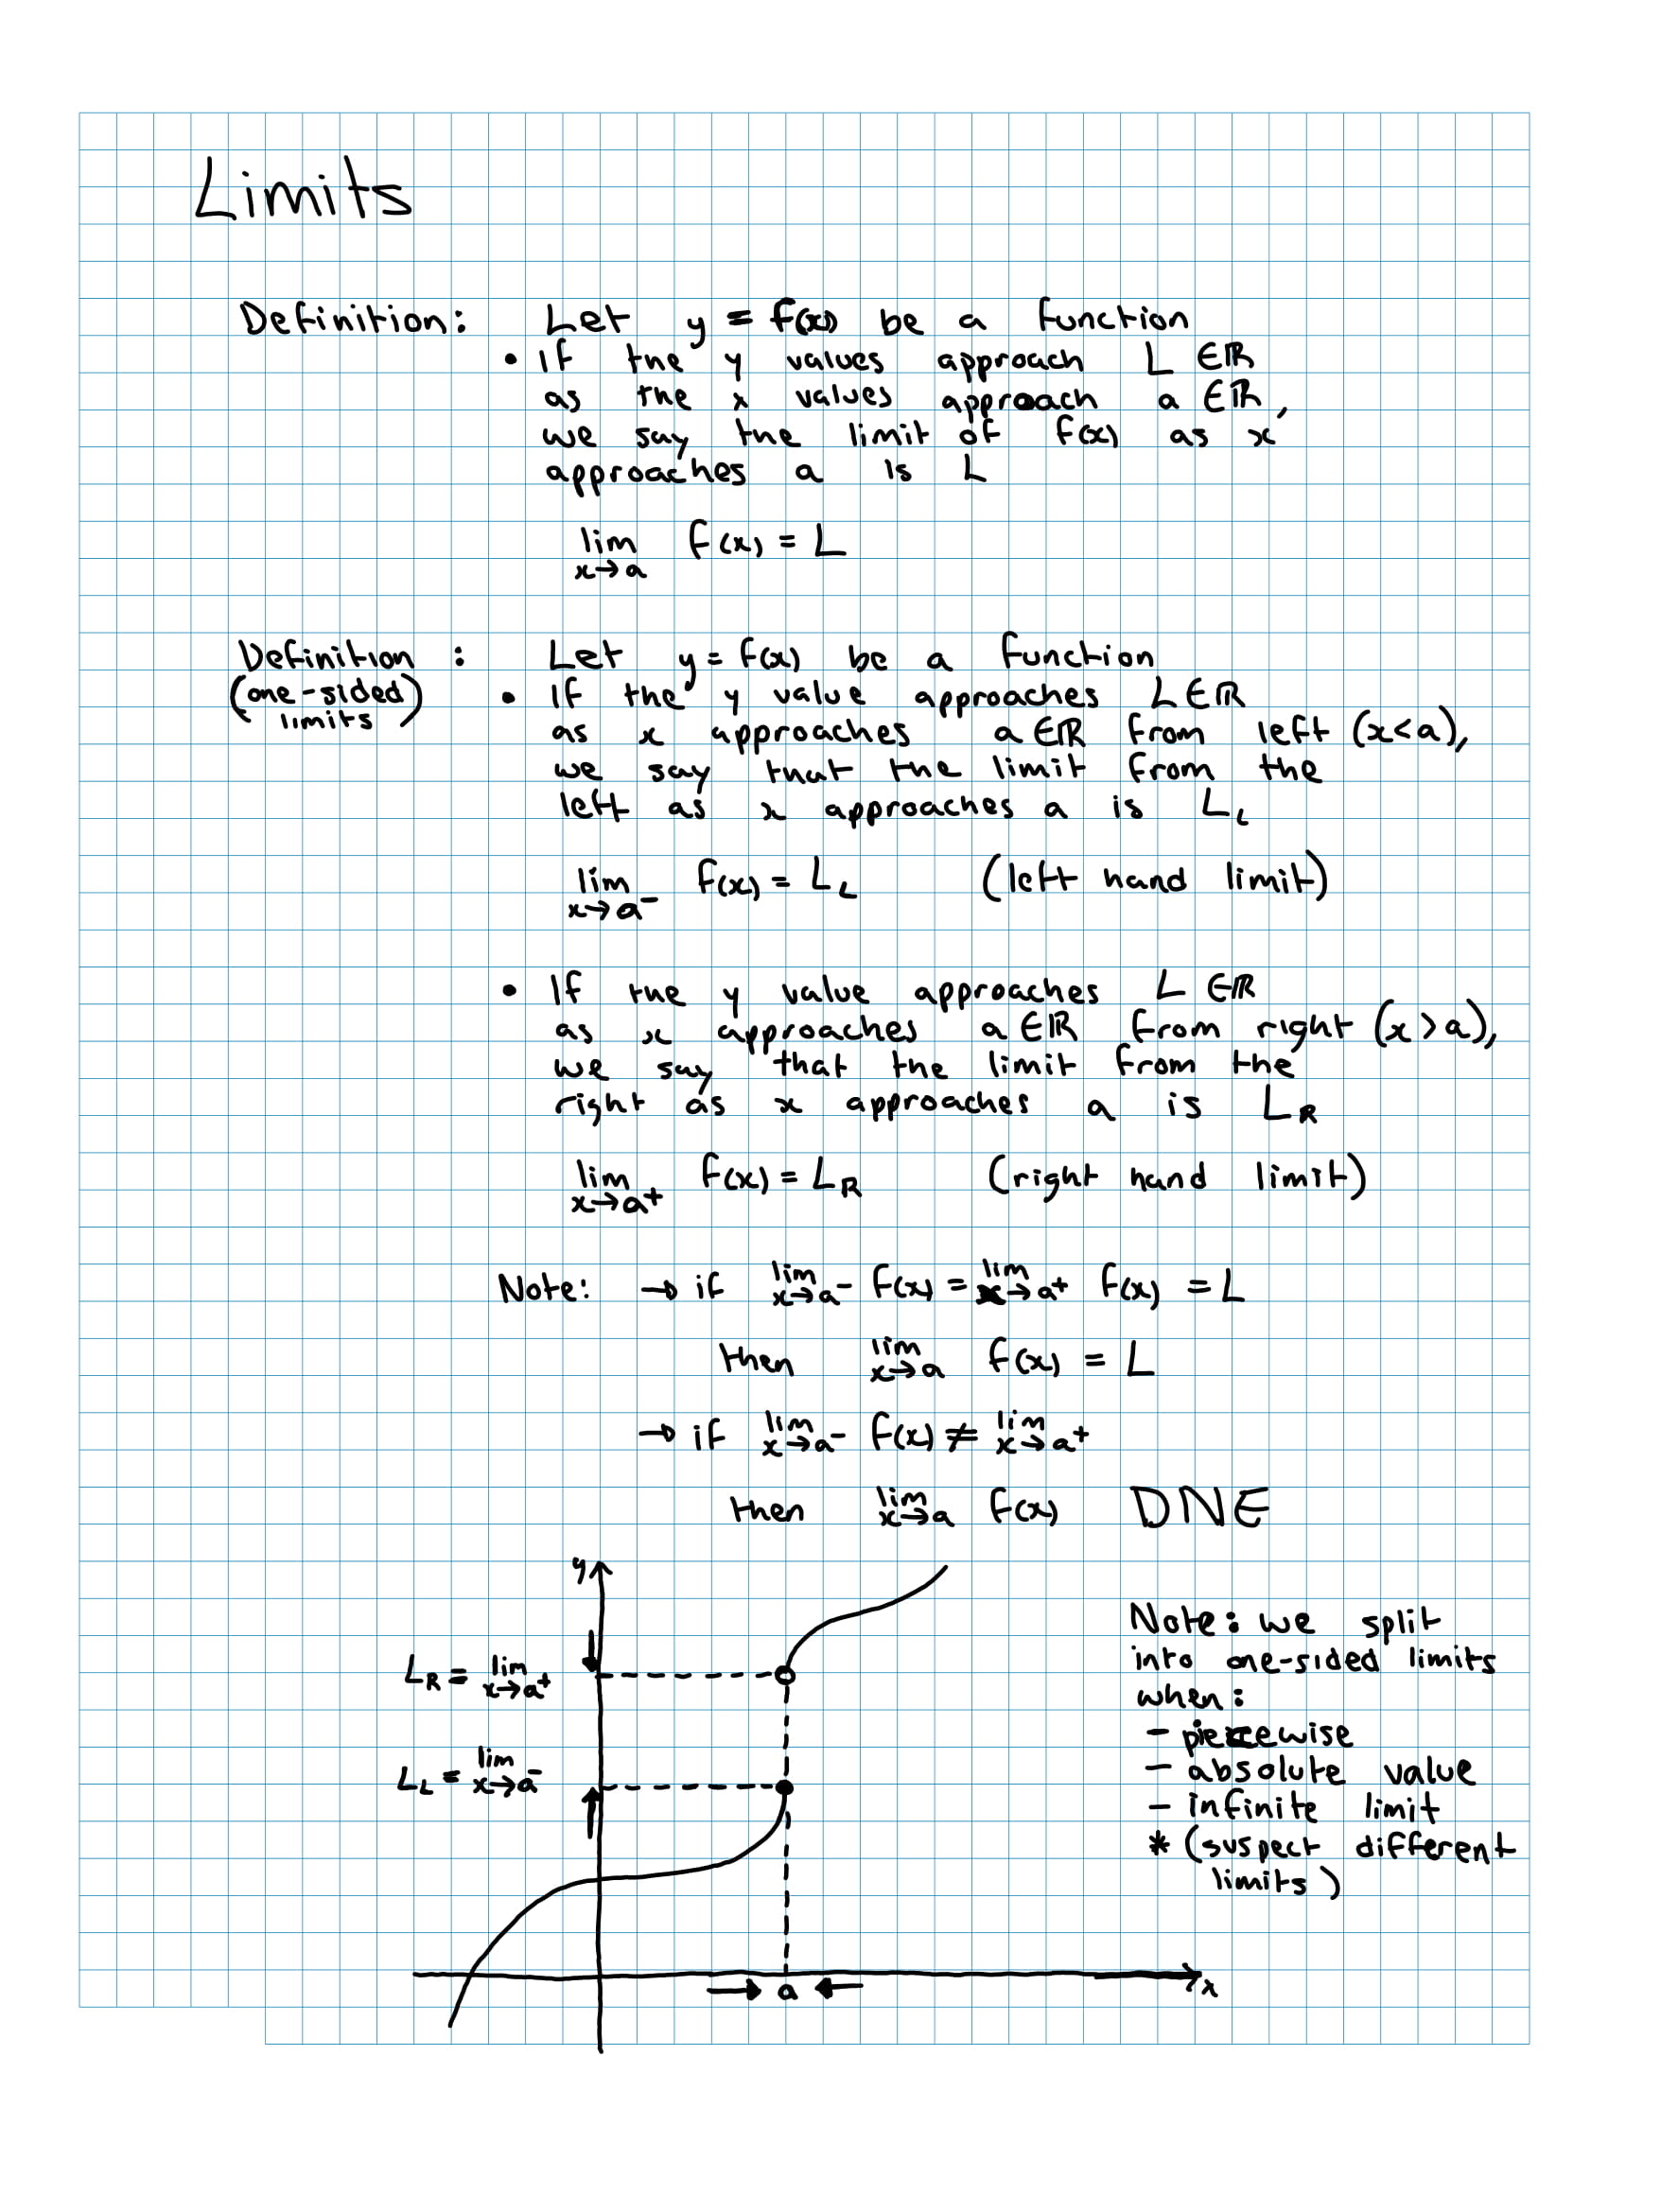 Limits
Definition: Let y = f(x) be a function
• If the y values approach L ∈ ℝ
as the x values approach a ∈ ℝ,
we say the limit of f(x) as x
approaches a is L
lim f(x) = L
x→a
Definition : Let y = f(x) be a function
(one-sided limits) • If the y value approaches L ∈ ℝ
as x approaches a ∈ ℝ from left (x<a),
we say that the limit from the
left as x approaches a is L_L
lim f(x) = L_L (left hand limit)
x→a⁻
• If the y value approaches L ∈ ℝ
as x approaches a ∈ ℝ from right (x>a),
we say that the limit from the
right as x approaches a is L_R
lim f(x) = L_R (right hand limit)
x→a⁺
Note: → if lim x→a⁻ f(x) = lim x→a⁺ f(x) = L
then lim x→a f(x) = L
→ if lim x→a⁻ f(x) ≠ lim x→a⁺
then lim x→a f(x) DNE
y
L_R = lim x→a⁺
L_L = lim x→a⁻
a
x
Note: we split
into one-sided limits
when:
- piecewise
- absolute value
- infinite limit
* (suspect different
limits)